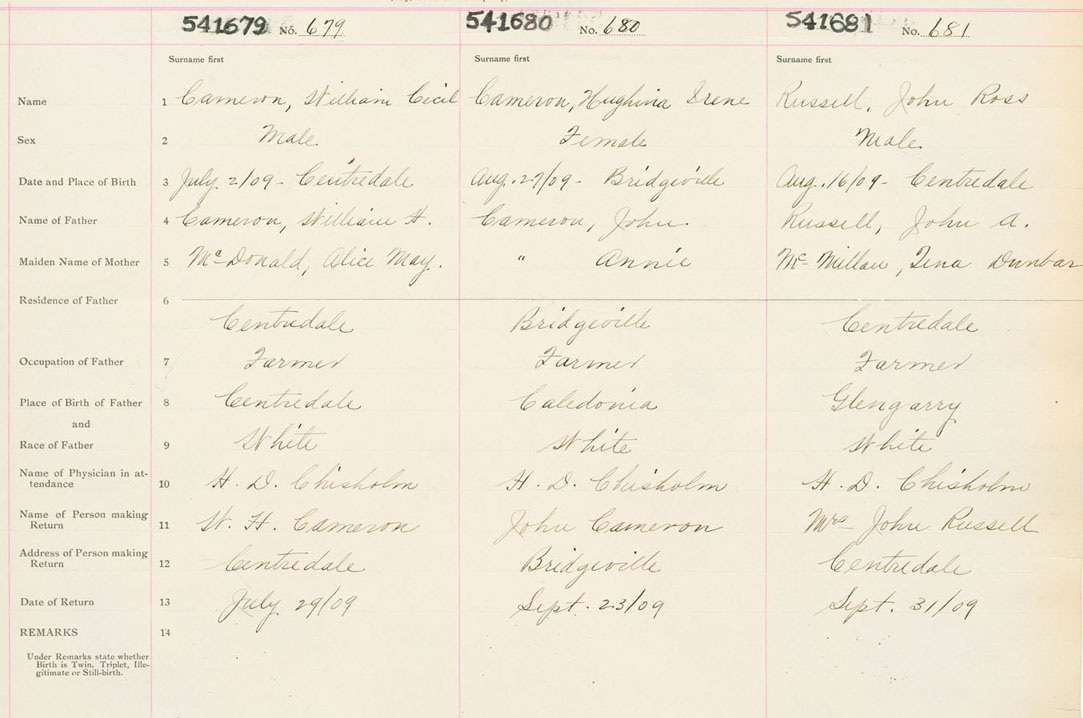 541679 No. 679 541680 No. 680 541681 No. 681
Surname first Surname first Surname first
Name 1 Cameron, William Cecil Cameron, Hughina Irene Russell, John Ross
Sex 2 Male. Female Male.
Date and Place of Birth 3 July 2/09 - Centredale Aug. 27/09 - Bridgeville Aug. 16/09 - Centredale
Name of Father 4 Cameron, William H. Cameron, John. Russell, John A.
Maiden Name of Mother 5 McDonald, Alice May. " Annie McMillan, Tena Dunbar
Residence of Father 6
Centredale Bridgeville Centredale
Occupation of Father 7 Farmer Farmer Farmer
Place of Birth of Father 8 Centredale Caledonia Glengarry
and
Race of Father 9 White White White
Name of Physician in at-
tendance 10 H. D. Chisholm H. D. Chisholm H. D. Chisholm
Name of Person making
Return 11 W. H. Cameron John Cameron Mrs John Russell
Address of Person making
Return 12 Centredale Bridgeville Centredale
Date of Return 13 July 29/09 Sept. 23/09 Sept. 31/09
REMARKS 14
Under Remarks state whether
Birth is Twin, Triplet, Ille-
gitimate or Still-birth.